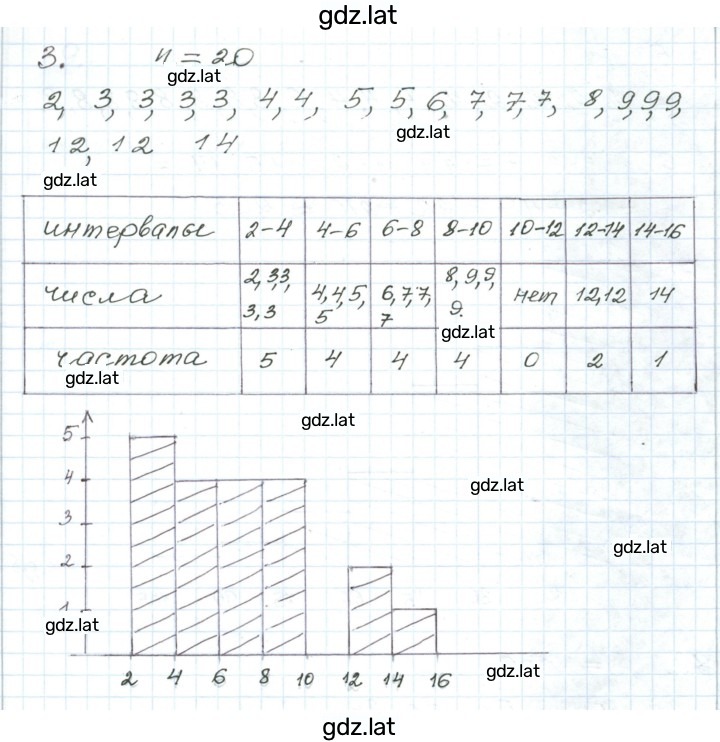 gdz.lat
3. n = 20
gdz.lat
2, 3, 3, 3, 3, 4, 4, 5, 5, 6, 7, 7, 7, 8, 9, 9, 9,
gdz.lat
12, 12 14
gdz.lat
интервалы 2-4 4-6 6-8 8-10 10-12 12-14 14-16
числа 2,3,3, 3,3 4,4,5, 5 6,7,7, 7 8,9,9, 9. нет 12,12 14
gdz.lat
частота 5 4 4 4 0 2 1
gdz.lat
gdz.lat
5
4
gdz.lat
3
gdz.lat
2
1
gdz.lat
gdz.lat
2 4 6 8 10 12 14 16
gdz.lat